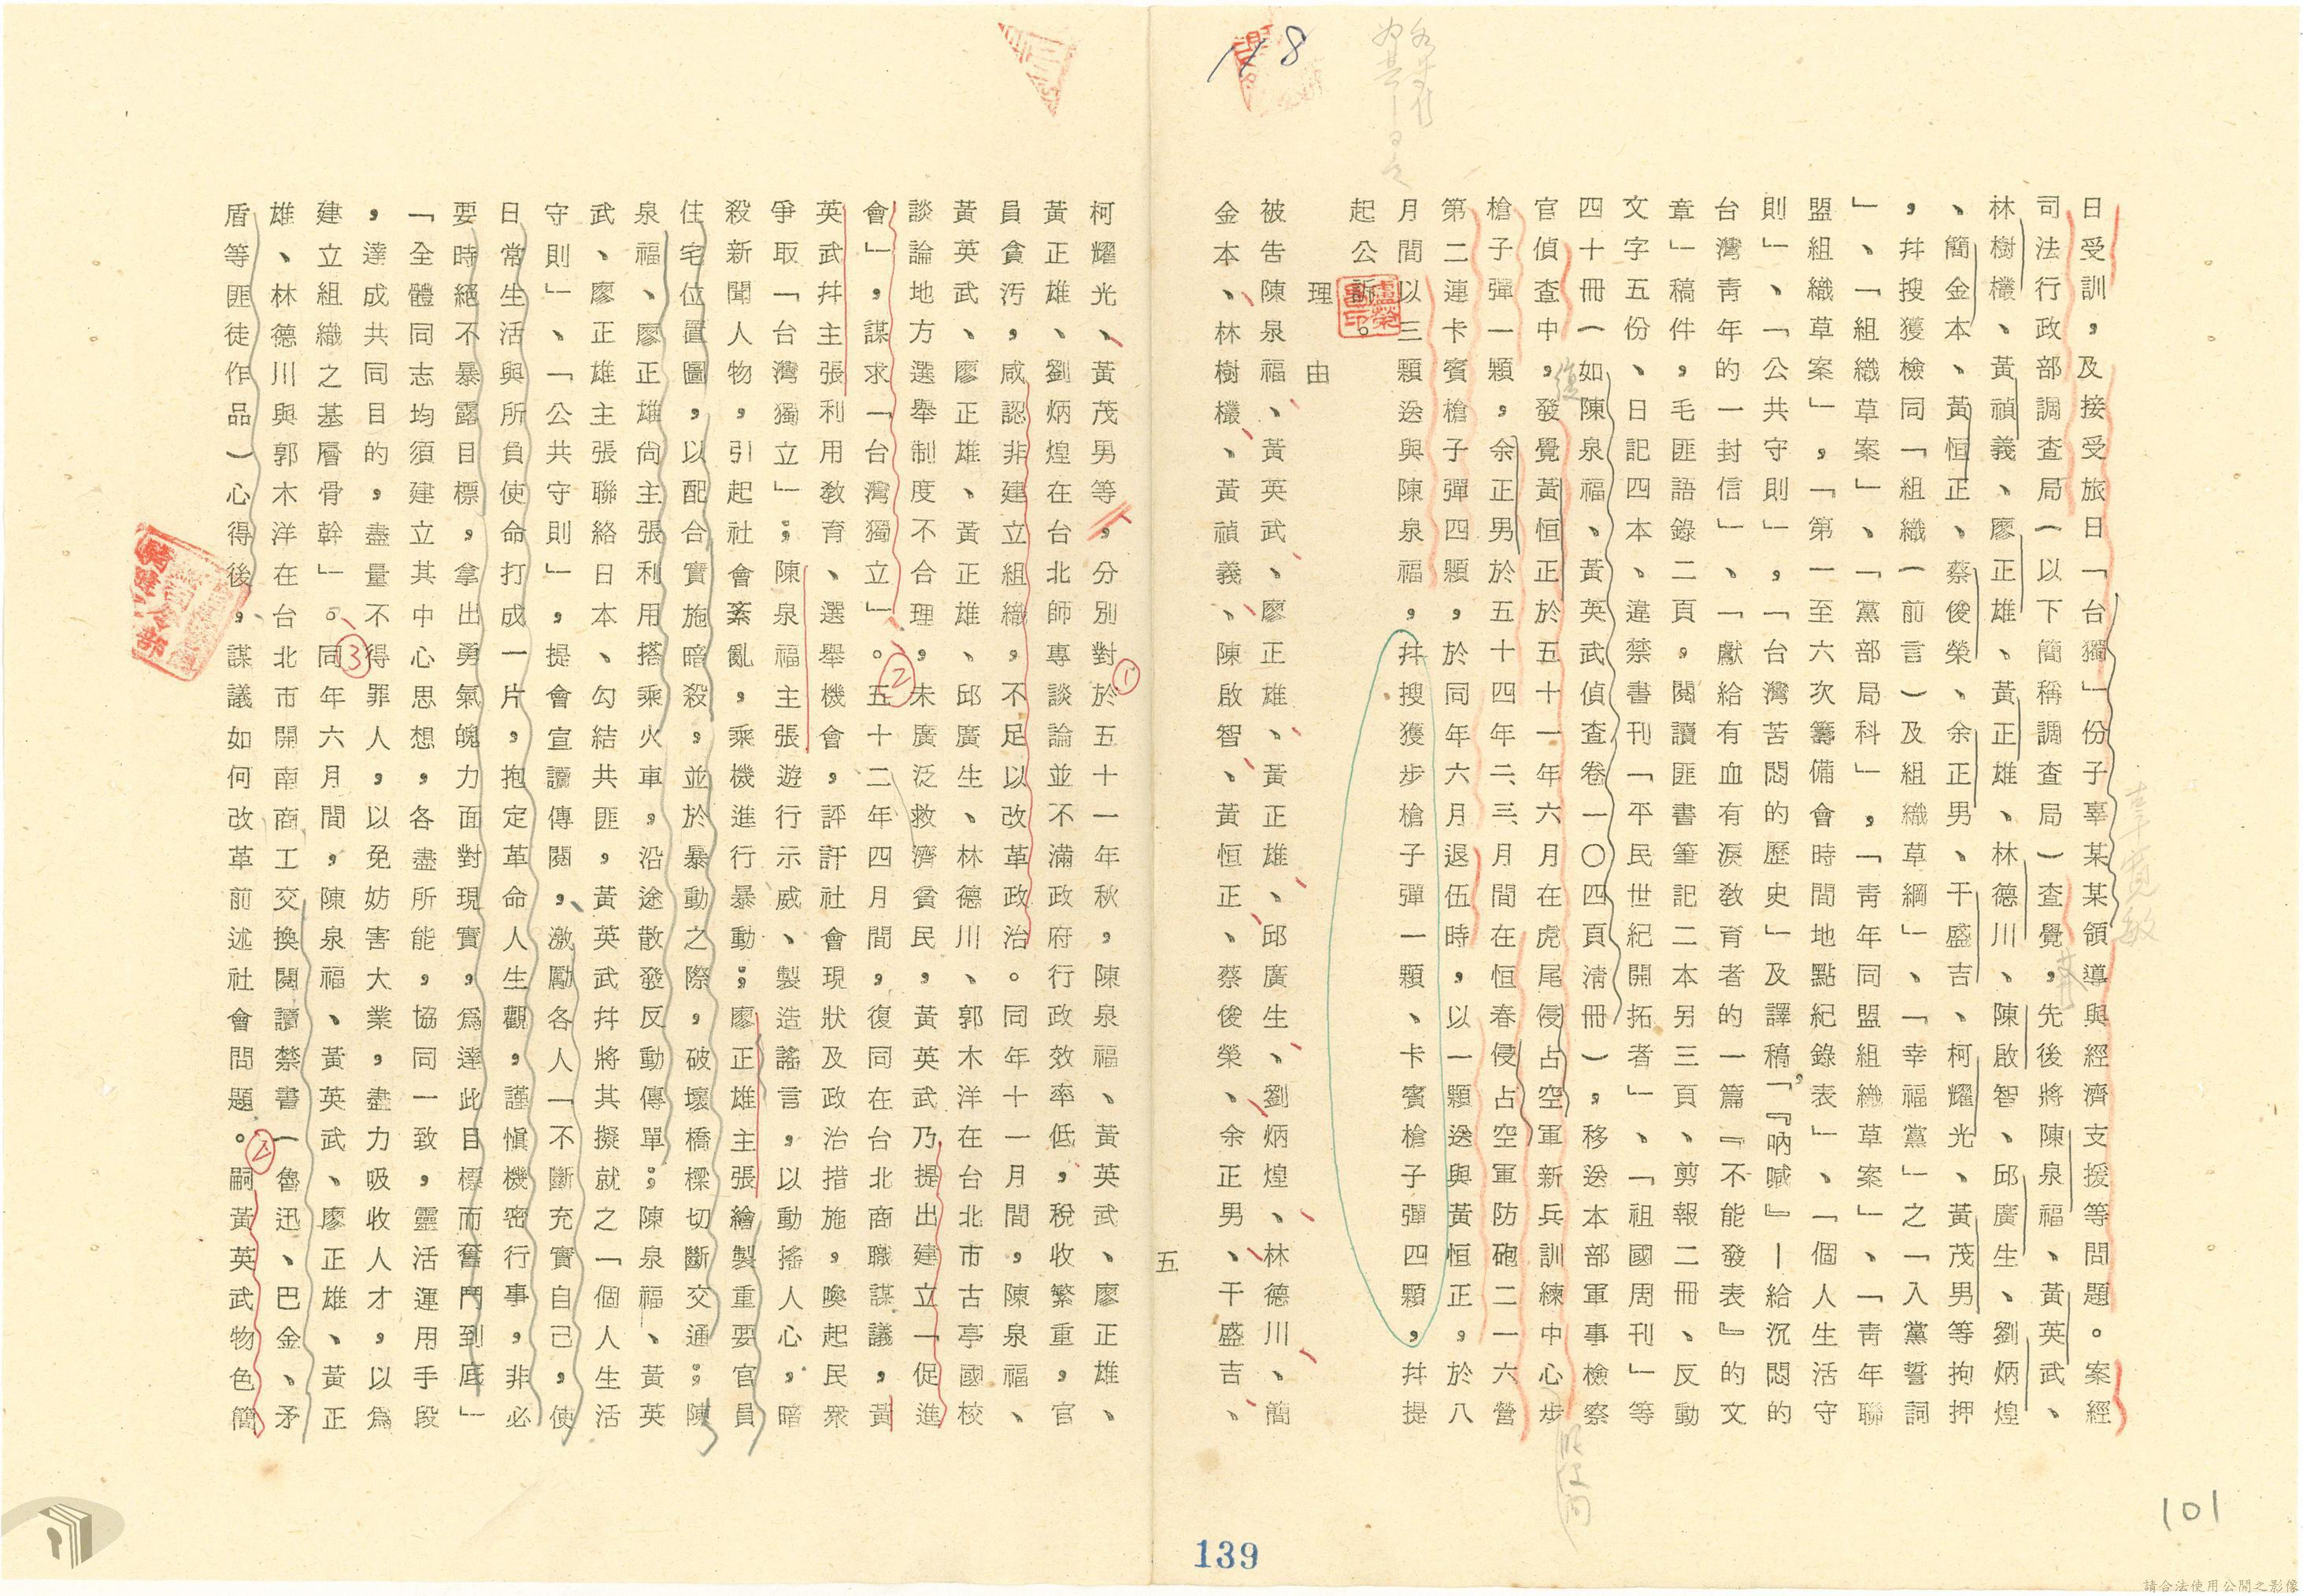 118
日受訓，及接受旅日「台獨」份子辜某某領導與經濟支援等問題。案經
司法行政部調查局（以下簡稱調查局）查覺，先後將陳泉福、黃英武、
林樹欉、黃禎義、廖正雄、黃正雄、林德川、陳啟智、邱廣生、劉炳煌
、簡金本、黃恒正、蔡俊榮、余正男、干盛吉、柯耀光、黃茂男等拘押
，并搜獲檢同「組織（前言）及組織草綱」、「幸福黨」之「入黨誓詞
」、「組織草案」、「黨部局科」，「青年同盟組織草案」、「青年聯
盟組織草案」，「第一至六次籌備會時間地點紀錄表」、「個人生活守
則」、「公共守則」，「台灣苦悶的歷史」及譯稿「『吶喊』－給沉悶的
台灣青年的一封信」、「獻給有血有淚教育者的一篇『不能發表』的文
章」稿件，毛匪語錄二頁，閱讀匪書筆記二本另三頁、剪報二冊、反動
文字五份、日記四本、違禁書刊「平民世紀開拓者」、「祖國周刊」等
四十冊（如陳泉福、黃英武偵查卷一〇四頁淸冊），移送本部軍事檢察
官偵查中，發覺黃恒正於五十一年六月在虎尾侵占空軍新兵訓練中心步
槍子彈一顆，余正男於五十四年二、三月間在恒春侵占空軍防砲二一六營
第二連卡賓槍子彈四顆，於同年六月退伍時，以一顆送與黃恒正。於八
月間以三顆送與陳泉福，并搜獲步槍子彈一顆、卡賓槍子彈四顆，并提
起公訴。
理由
被告陳泉福、黃英武、廖正雄、黃正雄、邱廣生、劉炳煌、林德川、簡
金本、林樹欉、黃禎義、陳啟智、黃恒正、蔡俊榮、余正男、干盛吉、
五
柯耀光、黃茂男等，分別對於五十一年秋，陳泉福、黃英武、廖正雄、
黃正雄、劉炳煌在台北師專談論並不滿政府行政效率低，稅收繁重，官
員貪污，咸認非建立組織，不足以改革政治。同年十一月間，陳泉福、
黃英武、廖正雄、黃正雄、邱廣生、林德川、郭木洋在台北市古亭國校
談論地方選舉制度不合理，未廣泛救濟貧民，黃英武乃提出建立一促進
會」，謀求「台灣獨立」。五十二年四月間，復同在台北商職謀議，黃
英武并主張利用教育、選舉機會，評訐社會現狀及政治措施，喚起民眾
爭取「台灣獨立」；陳泉福主張遊行示威、製造謠言，以動搖人心，暗
殺新聞人物，引起社會紊亂，乘機進行暴動；廖正雄主張繪製重要官員
住宅位置圖，以配合實施暗殺，並於暴動之際，破壞橋樑切斷交通；陳
泉福、廖正雄尙主張利用搭乘火車，沿途散發反動傳單；陳泉福、黃英
武、廖正雄主張聯絡日本、勾結共匪，黃英武并將其擬就之「個人生活
守則」、「公共守則」，提會宣讀傳閱，激勵各人一不斷充實自己，使
日常生活與所負使命打成一片，抱定革命人生觀，謹愼機密行事，非必
要時絕不暴露目標，拿出勇氣魄力面對現實，爲達此目標而奮鬥到底」
「全體同志均須建立其中心思想，各盡所能，協同一致，靈活運用手段
，達成共同目的，盡量不得罪人，以免妨害大業，盡力吸收人才，以爲
建立組織之基層骨幹」。同年六月間，陳泉福、黃英武、廖正雄、黃正
雄、林德川與郭木洋在台北市開南商工交換閱讀禁書一魯迅、巴金、矛
盾等匪徒作品）心得後，謀議如何改革前述社會問題。嗣黃英武物色簡
139
101
請合法使用公開之影像